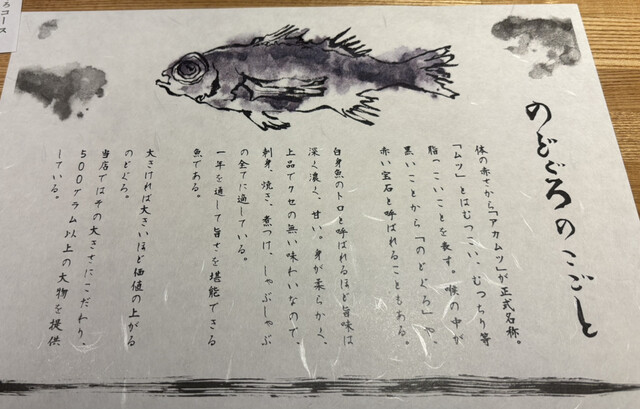 ろコース
のどぐろのこごと
体の赤さから「アカムツ」が正式名称。
「ムツ」とはむつこい、むつちり等
脂っこいことを表す。喉の中が
黒いことから「のどぐろ」や、
赤い宝石と呼ばれることもある。
白身魚のトロと呼ばれるほど旨味は
深く濃く、甘い。身が柔らかく、
上品でクセの無い味わいなので、
刺身、焼き、煮つけ、しゃぶしゃぶ
の全てに適している。
一年を通して旨さを堪能できる
魚である。
大きければ大きいほど価値の上がる
のどぐろ。
当店ではその大きさにこだわり、
500グラム以上の大物を提供
している。